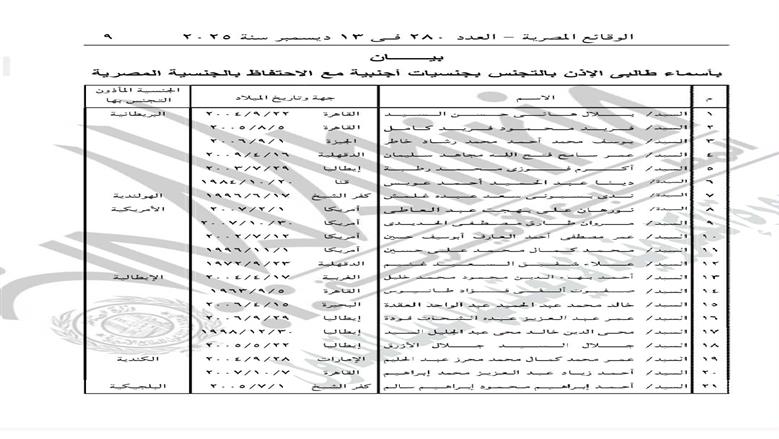 الوقائع المصرية – العدد ٢٨٠ فى ١٣ ديسمبر سنة ٢٠٢٥ ٩
بيـــان
بأسماء طالبى الإذن بالتجنس بجنسيات أجنبية مع الاحتفاظ بالجنسية المصرية
م الاســـم جهة وتاريخ الميلاد الجنسية المأذون التجنس بها
١ السيد/ بلال هانى حسن السيد القاهرة ٢٠٠٤/٩/٢٢ البريطانية
٢ السيد/ فريد محمود فريد كامل القاهرة ٢٠٠٥/٨/٥
٣ السيد/ يوسف محمد أحمد محمد رشاد خاطر الجيزة ٢٠٠٦/٩/١
٤ السيد/ عمر سامح فتح الله مجاهد سليمان الدقهلية ٢٠٠٩/٤/١٦
٥ السيد/ أكرم فوزى محمد رطبة إيطاليا ٢٠٠٣/٧/٢٩
٦ السيد/ دينا عبد الحميد أحمد عويس قنا ١٩٨٤/١٠/٢٠
٧ السيد/ ندى بسيونى سعد عبده كفر الشيخ ١٩٩٦/٦/١٧ الهولندية
٨ السيد/ نورهان على بهجت عبد العاطى أمريكا ٢٠٠٧/٢/١ الأمريكية
٩ السيد/ مروان طارق مصطفى الحديدى أمريكا ٢٠٠٧/١٠/٣٠
١٠ السيد/ عمر مصطفى أحمد العارف أبوسيف حسين أمريكا ٢٠٠٧/٧/١٢
١١ السيد/ محمد كمال محمد على حسين أمريكا ١٩٩٦/١/١
١٢ السيد/ علاء شفيق السعيد غنيم الدقهلية ١٩٧٢/٩/٢٣
١٣ السيد/ أحمد بهاء الدين محمود محمد خليل الغربية ٢٠٠٤/٤/١٧ الإيطالية
١٤ السيد/ صفوت ألفى فؤاد طانيوس القاهرة ١٩٦٣/٩/٥
١٥ السيد/ خالد محمد عبد الحميد عبد الواحد العقدة البحيرة ٢٠٠٦/٤/١٥
١٦ السيد/ عمر عبد العزيز عبده الشحات فودة إيطاليا ٢٠٠٦/٩/٢٩
١٧ السيد/ محى الدين خالد محى عبد الجليل السيد إيطاليا ١٩٩٨/١٢/٣٠
١٨ السيد/ جلال السيد جلال الأزرق إيطاليا ٢٠٠٥/٥/٢٢
١٩ السيد/ عمر محمد كمال محمد محرز عبد الحليم الإمارات ٢٠٠٤/٩/٢٨ الكندية
٢٠ السيد/ أحمد زياد عبد العزيز محمد إبراهيم القاهرة ٢٠٠٧/١٠/٧
٢١ السيد/ أحمد إبراهيم محمود إبراهيم سالم كفر الشيخ ٢٠٠٥/٧/١ البلجيكية